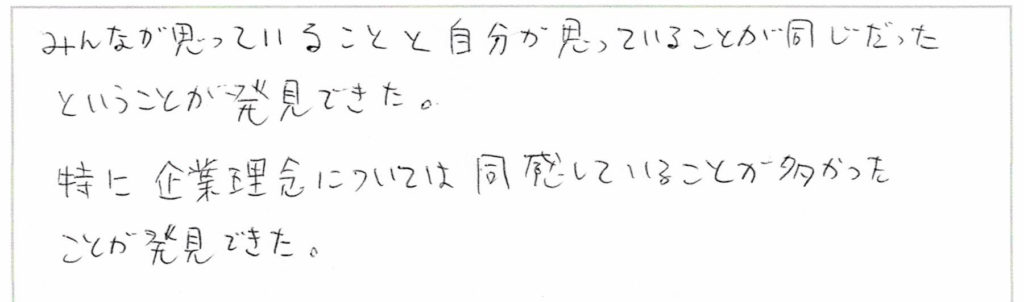 みんなが思っていることと自分が思っていることが同じだった
ということが発見できた。
特に企業理念については同感していることが多かった
ことが発見できた。